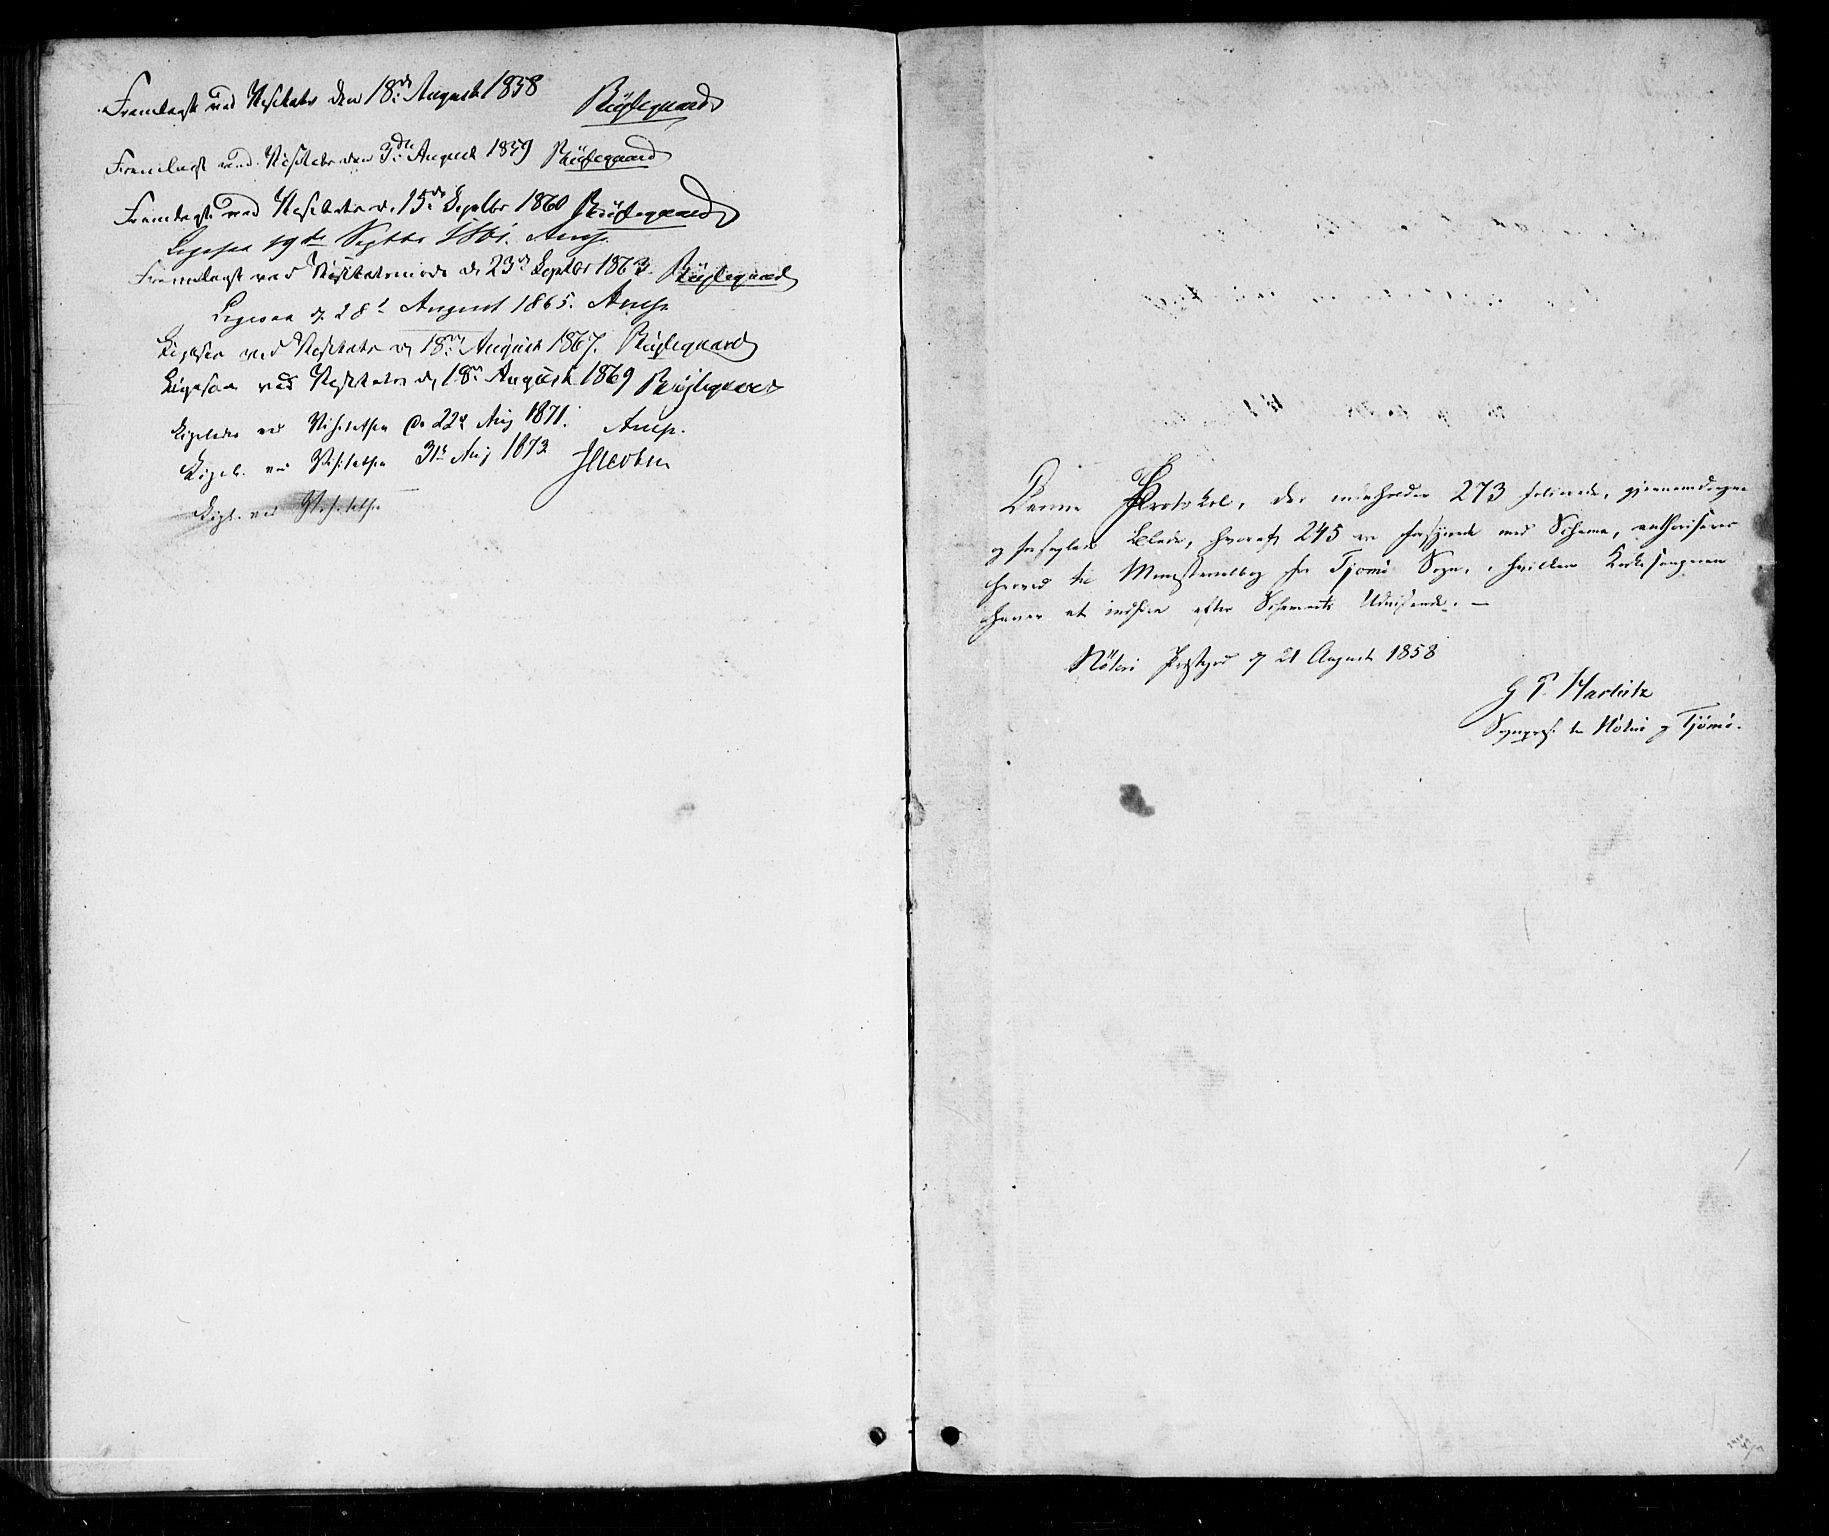 Fremlagt ved Visitats den 18de August 1858 Bugtegaard
Fremlagt ved Visitats den 3die August 1859
Fremlagt ved Visitats d. 15de Septbr 1860
Ligesaa 19de Septbr 1861. Arup.
Fremlagt ved Visitats d. 23de Septbr 1863.
Ligesaa d. 28de August 1865. Arup.
Ligesaa ved Visitats d. 18de August 1867.
Ligesaa ved Visitats d. 18de August 1869
Ligeledes ved Visitatsen d. 22de Aug 1871. Arup.
Ligel. ved Visitatsen 31te Aug 1873. J Jacobsen
Ligl. ved Visitatsen
Denne Protokol, der indeholder 273 folierede, gjennemdragne
og forseglede Blade, hvoraf 245 er forsynede med Schema, authoriseres
herved til Ministerialbog for Tjømø Sogn, i hvilken Kirkesangeren
haver at indføre efter Schemaets Udvisende. —
Nøterø Præstegd d 21 August 1858
G P. Harbitz
Sognepræst til Nøterø og Tjømø.